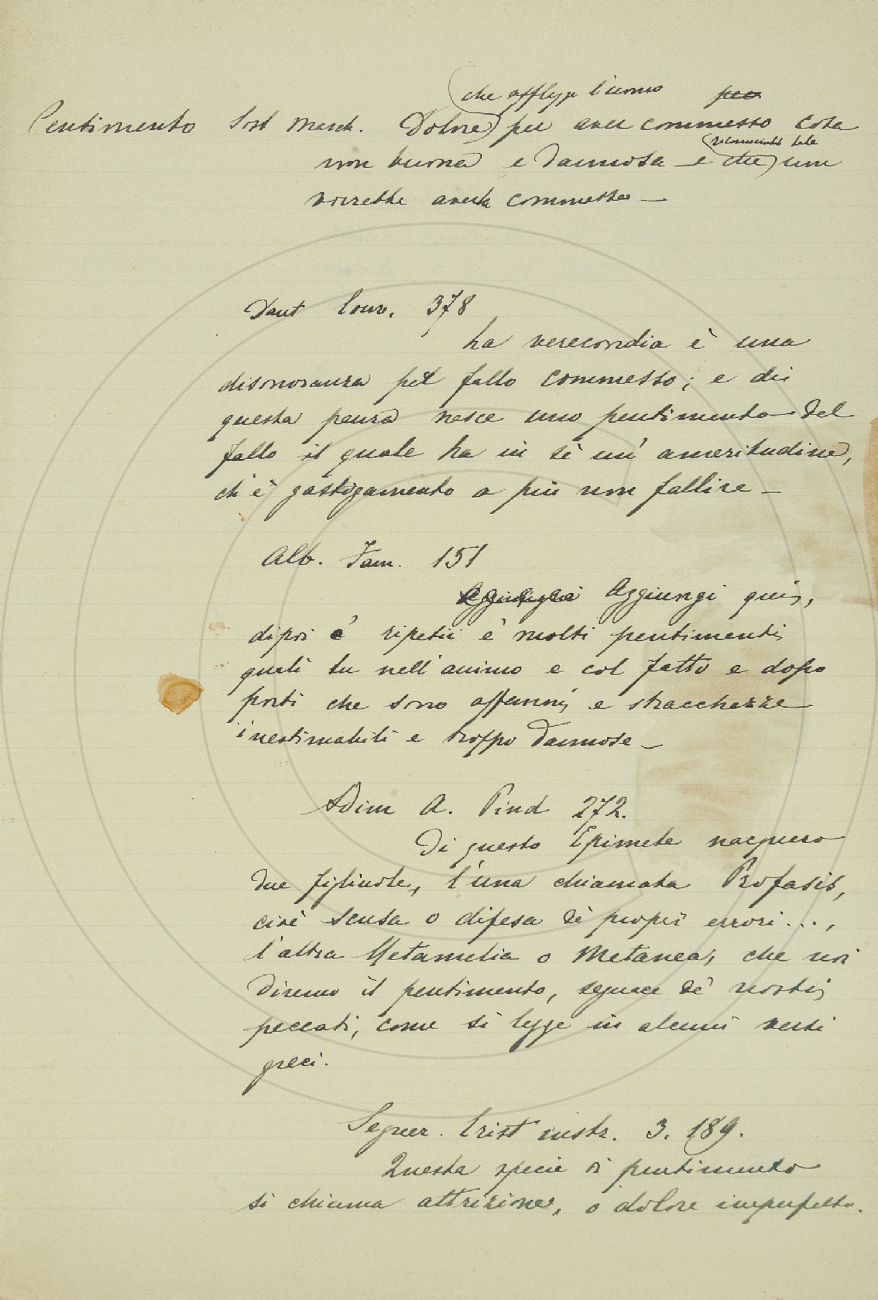 che afflige l'uomo per
Pentimento Sost Masch. Dolore per aver commesso cosa
riconosciuta tale
non buona e dannosa e che un
vorrebbe averla commessa —
Dant Conv. 378
La verecondia è una
disonoranza pel fallo commesso; e di
questa paura nasce uno pentimento del
fallo il quale ha in sè un' amaritudine,
ch'è gastigamento a più non fallire —
Alb. Fam. 151
Aggiungi qui,
dipoi è ripetii è molti pentimenti
quali tu nell'animo e col fatto e dopo
porti che sono affanni e stracchezze
inestimabili e troppo dannose —
Adim A. Pind 272.
Di questo Epimete nacquero
due figliuole, l'una chiamata Profasis,
cioè scusa o difesa de' propri errori...,
l'altra Metamelia o Metanea, che noi
diremo il pentimento, seguace de' nostri
peccati, come si legge in alcuni versi
greci.
Segner. Crist instr. 3. 189.
Questa specie di pentimento
si chiama attrizione, o dolore imperfetto.